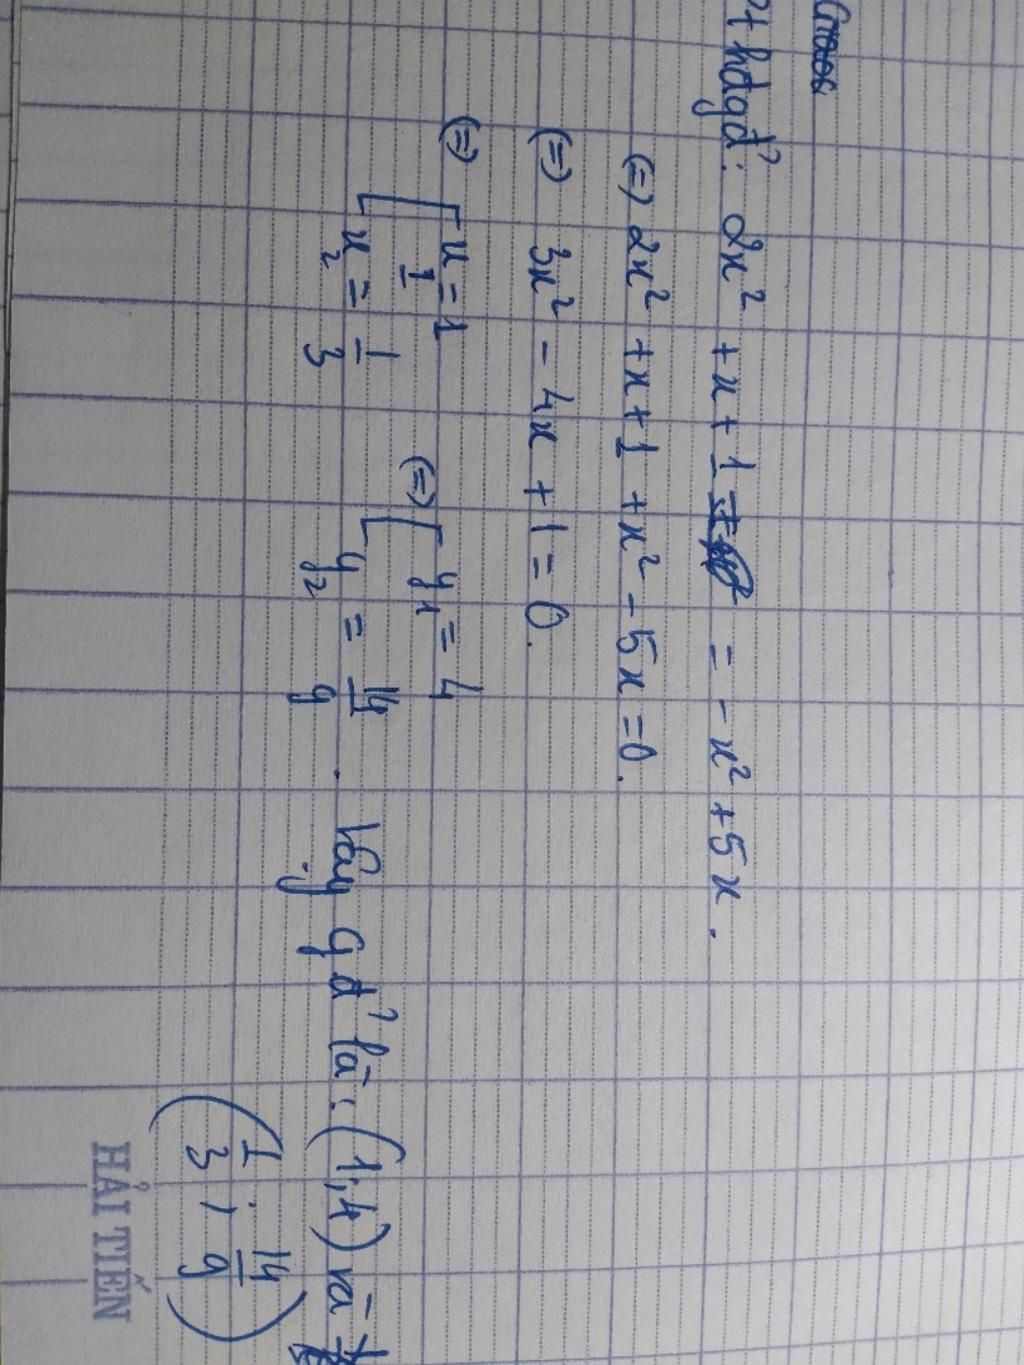 Pt hđgđ̉: 2x² + x + 1 = - x² + 5x.
(=) 2x² + x + 1 + x² - 5x = 0.
(=) 3x² - 4x + 1 = 0.
(=) [ x₁ = 1
x₂ = 1/3
(=) [ y₁ = 4
y₂ = 14/9. Vậy gđ̉ là: (1; 4) và
(1/3; 14/9)
HẢI TIẾN